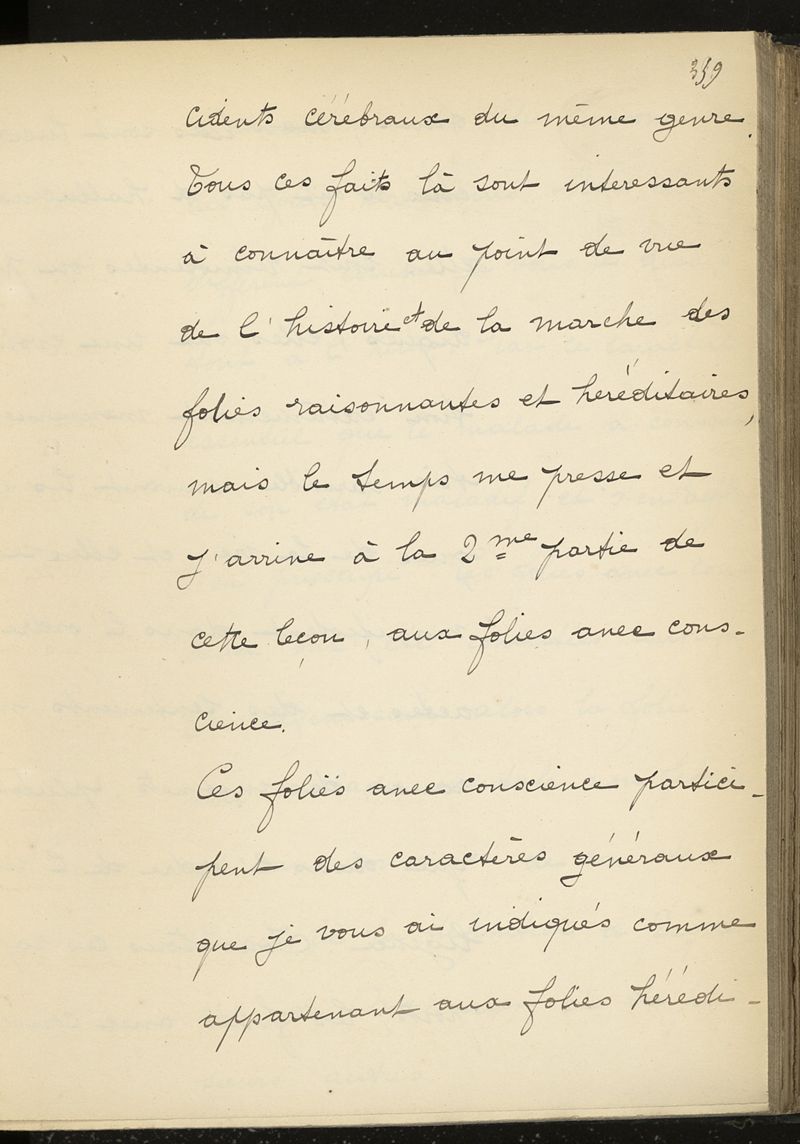 359
cidents cérébraux du même genre.
Tous ces faits là sont intéressants
à connaître au point de vue
de l'histoire et de la marche des
folies raisonnantes et héréditaires,
mais le temps me presse et
j'arrive à la 2me partie de
cette leçon, aux folies avec cons-
cience.
Ces folies avec conscience partici-
pent des caractères généraux
que je vous ai indiqués comme
appartenant aux folies hérédi-